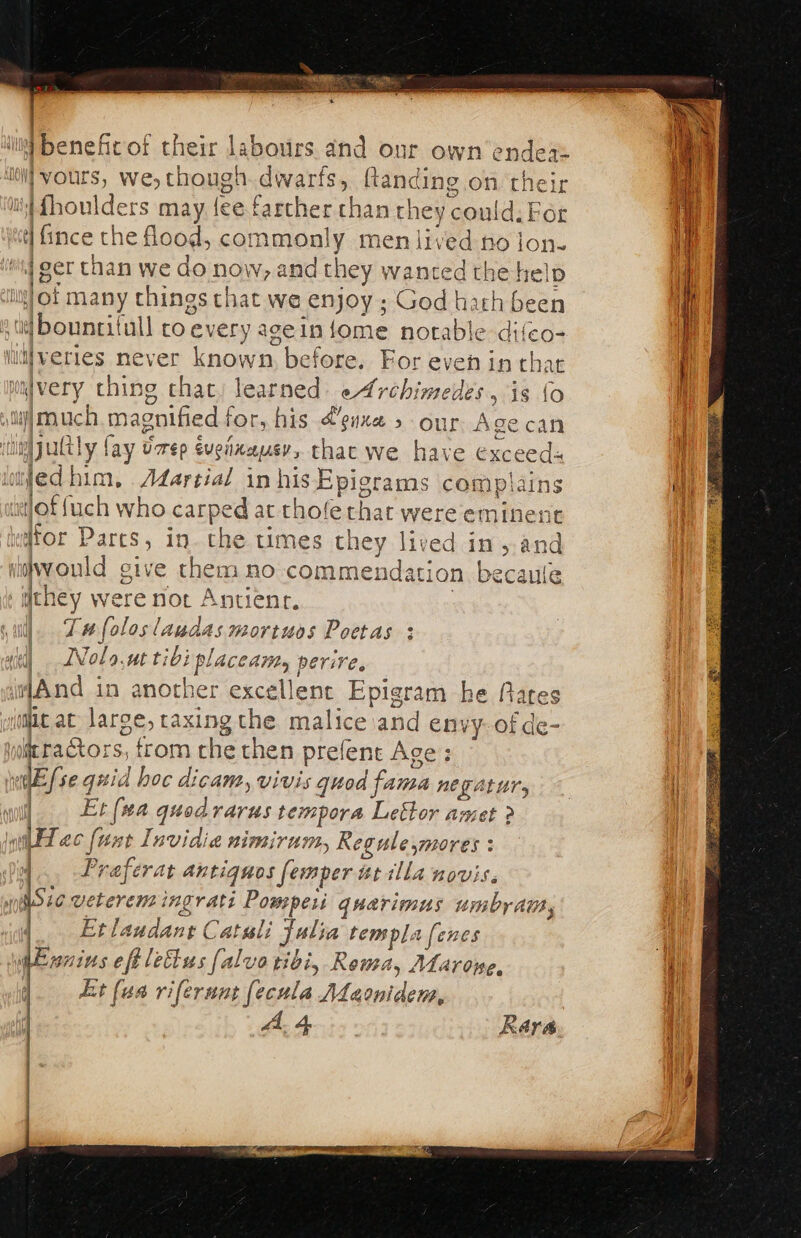 benefit of their labours and our own endea-
vours, we, though dwarfs, ſtanding on their
ſhoulders may ſee farther than they could. For
ſince the flood, commonly men lived no lon-
ger than we do now, and they wanted the help
of many things that we enjoy; God hath been
bountifull to every age in ſome notable diſco-
veries never known before. For even in that
very thing that learned Archimedes, is ſo
much magnified for, his our Age can
juſtly ſay that we have exceed-
ed him. Martial in his Epigrams complains
of ſuch who carped at thoſe that were eminent
for Parts, in the times they lived in, and
would give them no commendation becauſe
they were not Antient.
Tu ſolos laudas mortuos Poetas :
Nolo, ut tibi placeam, perire.
And in another excellent Epigram he ſtates
it at large, taxing the malice and envy of de-
tractors, from the then preſent Age :
Eſse quid hoc dicam, vivis quod fama negatur,
Et ſua quod rarus tempora Lector amet ?
Hæc ſunt Invidiæ nimirum, Regule, mores :
Præferat antiquos ſemper ut illa novis.
Sic veterem ingrati Pompeii quærimus umbram,
Et laudant Catuli Julia templa ſenes
Ennius eſt lectus ſalvo tibi, Roma, Marone.
Et ſua riſerunt ſecula Mæonidem.
A 4 Rara